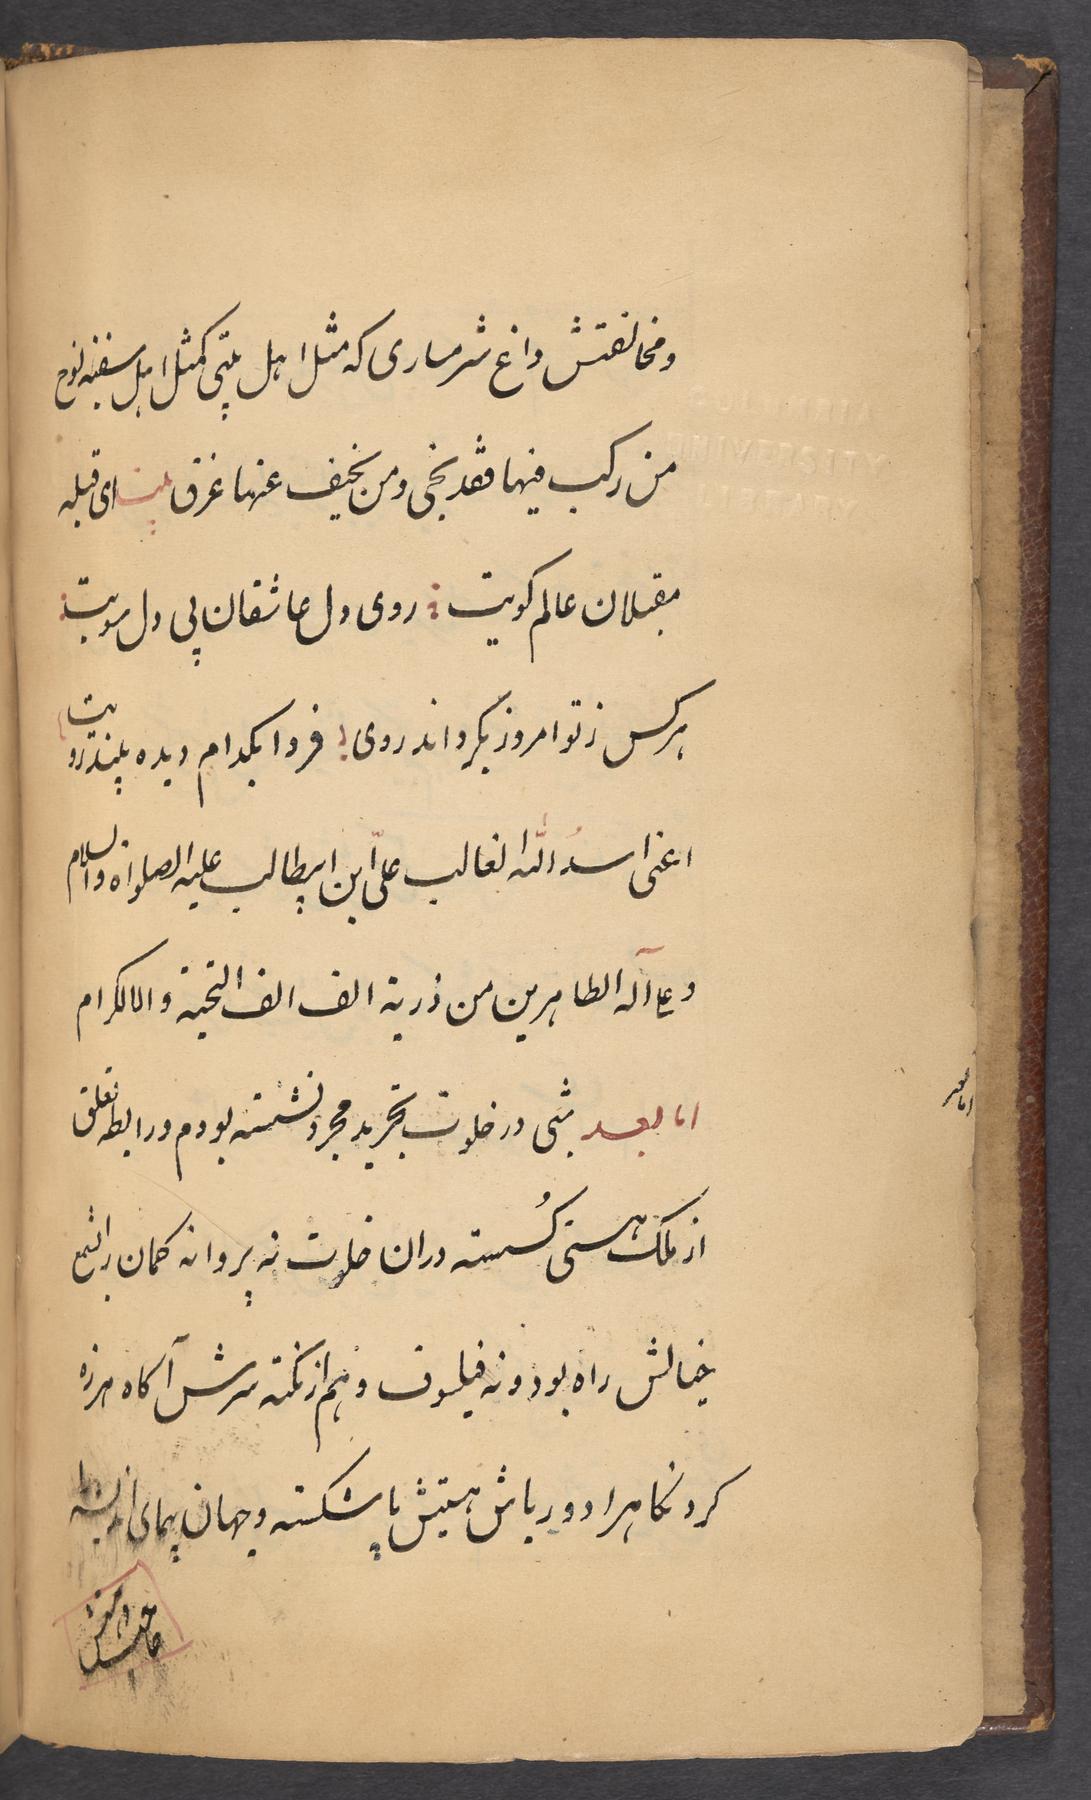 ومخالفتش داغ شرمساری که مثل اهل بیتی کمثل اهل سفینه نوح
من رکب فیها فقد نجی ومن یخیف عنها غرق بیت ای قبله
مقبلان عالم کویت روی دل عاشقان پی دل سویت
هر کس ز تو امروز بگرداند روی فردا بکدام دیده بیند رویت
اعنی اسدُ اللّه الغالب علیّ ابن ابیطالب علیه الصلواة والسلام
وعلی آله الطاهرین من ذریة الف الف التحیة والاکرام
اما بعد شبی در خلوت تجرید مجرد نشسته بودم ورابطه تعلق
از ملک هستی کُسسته دران خلوت نه پروانه کمان را شمع
خیالش راه بود ونه فیلسوف وهم از نکته سرش آکاه هرزه
کرد نکاهرا دور باش هیبتش پا شکسته وجهان پیمای
COLUMBIA
UNIVERSITY
LIBRARY